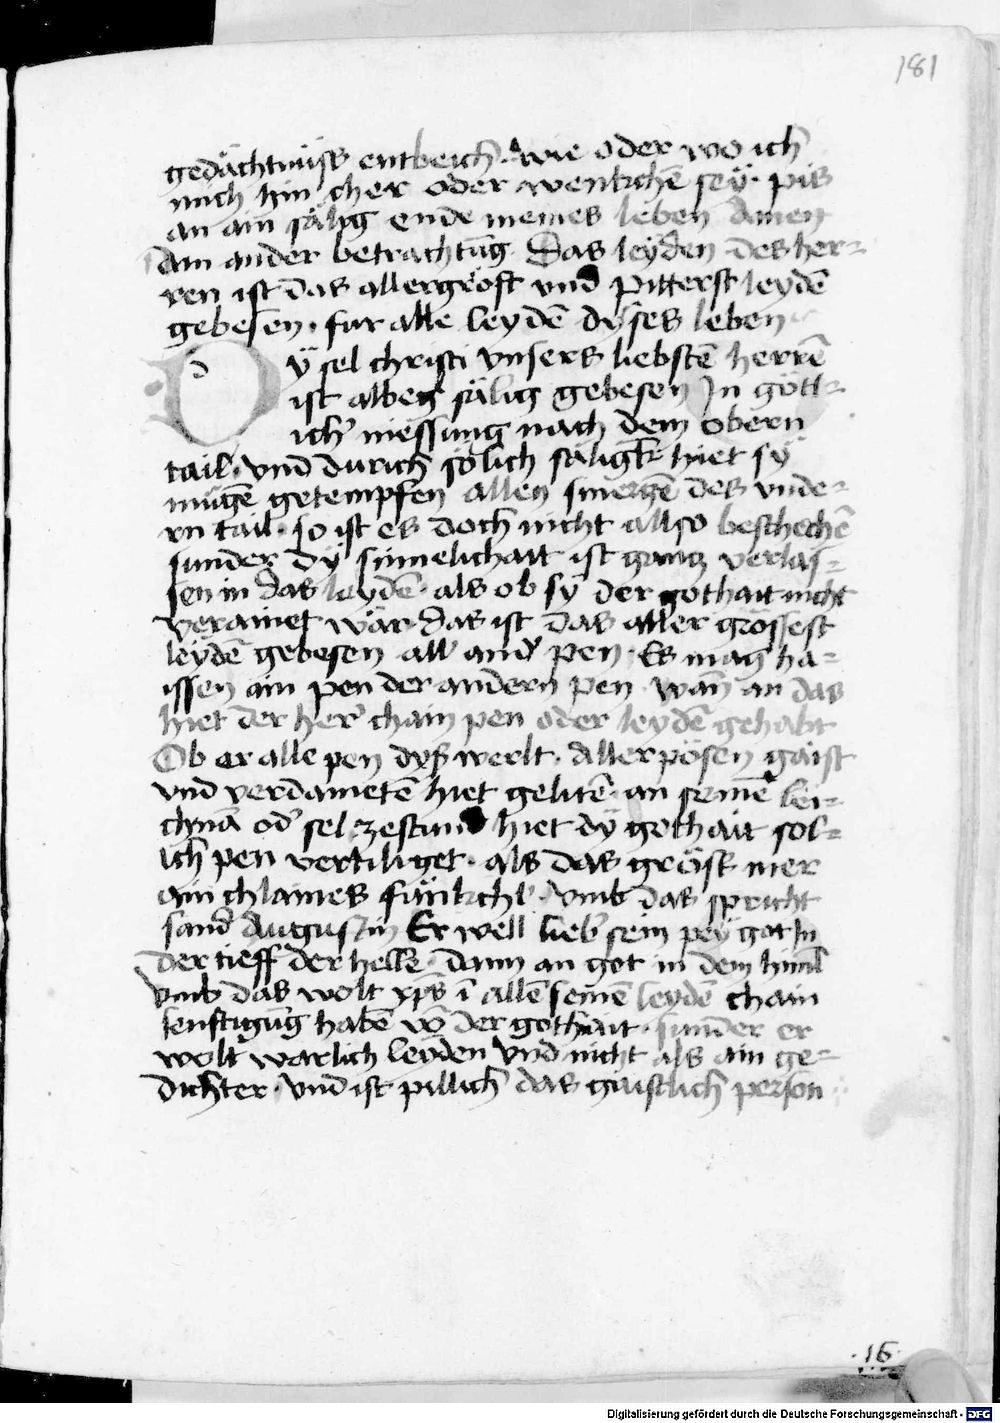 181
gedächtnüss entbeich. wie oder wo ich
mich hin cher oder wentschē seÿ. pis
an ain sälig ende meines leben Amen
Ain ander betrachtūg. Das leÿden des her-
ren ist das allergröst vnd pitterst leydē
gebesen. fur alle leydē dÿses leben
Dÿ sel christi vnsers liebstē herrē
ist albeg sälig gebesen In göttl-
ich niessung nach dem obern
tail. vnd durich sölich säligkt hiet sÿ
mügē getempfen allen smerczē des vnde-
rn tail. so ist es doch nicht allso beschechē
sunder dÿ sinnelichait ist gancz verlas-
sen in das leydē. als ob sÿ der gothait nicht
verainet wär. das ist das aller grössest
leÿdē gebesen all and' pen. Es mag ha-
issen ain pen der andern pen. wan an das
hiet der her' chain pen oder leydē gehabt
Ob er alle pen dyser werlt. Aller pösen gäist
vnd verdametē hiet gelitē. an seinē lei-
chnā od' sel. zestund hiet dÿ gothait sol-
ich pen vertiliget. als das gröst mer
ain chlaines fünkchl. vmb das spricht
sand Augustin Er well lieb' sein peÿ got In
der tieff der helle. dann an got in dem himl
vmb das wolt xp̄s ī allē seinē leydē chain
senftigūg habē vō der gothait. sunder er
wolt warlich leyden vnd nicht als ain ge-
dichter. vnd ist pillich das gaistlich person
.16.
Digitalisierung gefördert durch die Deutsche Forschungsgemeinschaft - DFG